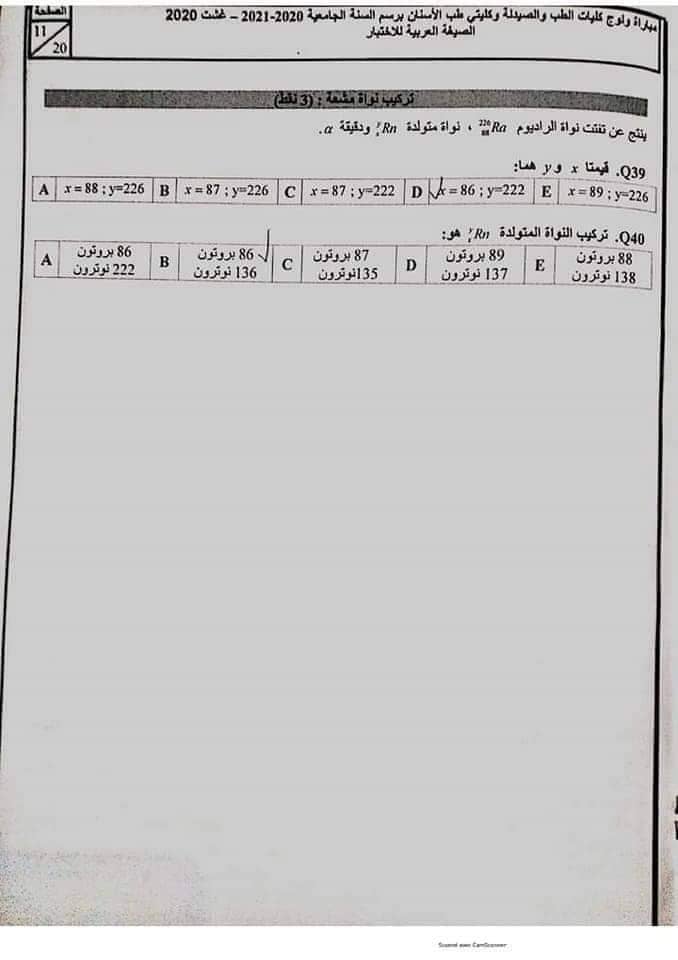 مباراة ولوج كليات الطب والصيدلة وكليتي طب الأسنان برسم السنة الجامعية 2020-2021 – غشت 2020
الصيغة العربية للاختبار
الصفحة
11
20
تركيب نواة مشعة : (3 نقط)
ينتج عن تفتت نواة الراديوم ²²⁶₈₈Ra ، نواة متولدة ʸₓRn ودقيقة α.
Q39. قيمتا x و y هما:
A x = 88 ; y=226 B x = 87 ; y=226 C x = 87 ; y=222 D x = 86 ; y=222 E x = 89 ; y=226
Q40. تركيب النواة المتولدة ʸₓRn هو:
A 86 بروتون B 86 بروتون C 87 بروتون D 89 بروتون E 88 بروتون
222 نوترون 136 نوترون 135نوترون 137 نوترون 138 نوترون
Scanné avec CamScanner